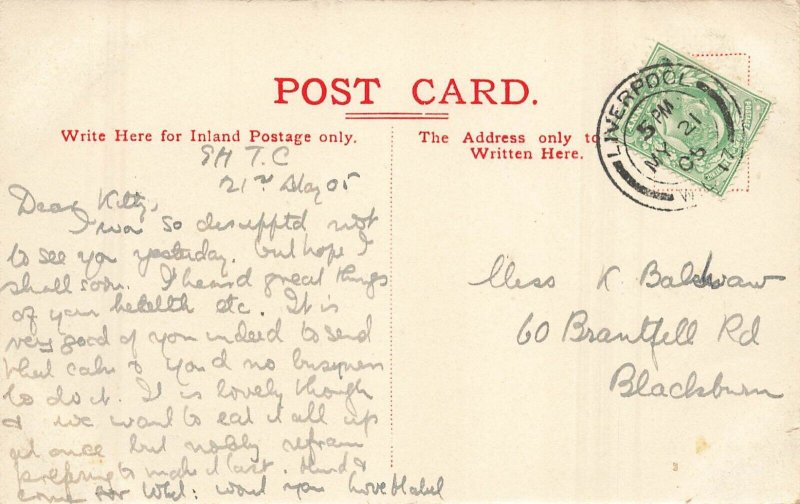 POST CARD.
Write Here for Inland Postage only.
The Address only to
Written Here.
LIVERPOOL
5 PM
MY 21
05
21st May 05
Dear Kitty,
I was so desappted not
to see you yesterday. but hope I
shall soon. I heard great things
of your health etc. It is
very good of you indeed to send
that cake & you d no busyness
to do it. It is lovely though
& we want to eat it all up
at once but nobly refrain
preferring to make it last. Mind &
come for Whit: wont you love Mabel
Miss K Balshaw
60 Brantfell Rd
Blackburn